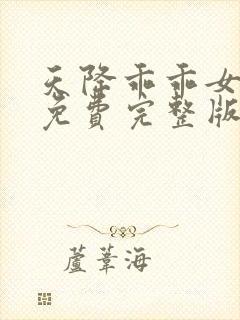 天降乖乖女
免费完整版
蘆葦海